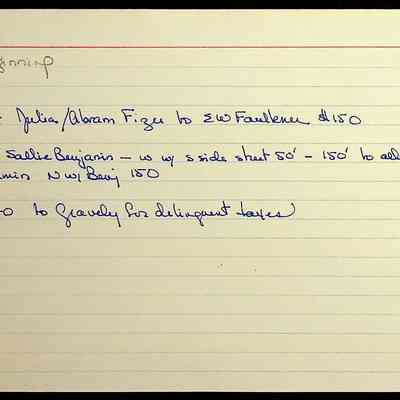 ginning
Julia/Abram Fizer to EW Faulkener $150
Sallie Benjamin – w w/ s side street 50' – 150' to all
amin N w/ Benj 150
0 to Gravely for delinquent taxes